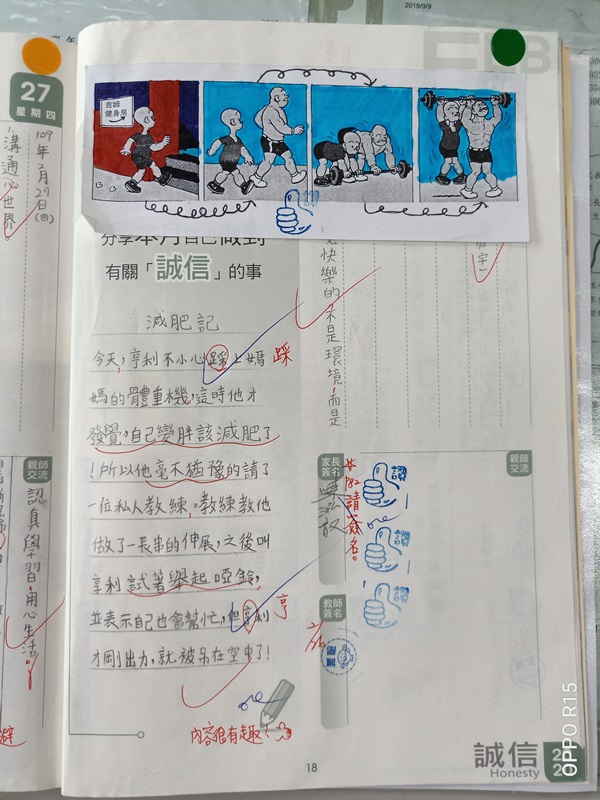 2019/9/9
27
星期四
109年2月27日(四)
溝通心世界。
吉姆
健身房
分享本月自己做到
有關「誠信」的事
快樂的不是環境,而是
減肥記
今天,亨利不小心踩上媽
踩
媽的體重機,這時他才
發覺,自己變胖該減肥了
!所以他毫不猶豫的請了
一位私人教練。教練教他
做了一長串的伸展,之後叫
亨利試著舉起啞鈴,
並表示自己也會幫忙,但亨利
亨
才剛出力,就被吊在空中了!
內容很有趣!
親師
交流
認真學習,用心生活。
家長
簽名
請簽名。
讚
讚
讚
親師
交流
教師
簽名
18
誠信
Honesty
OPPO R15